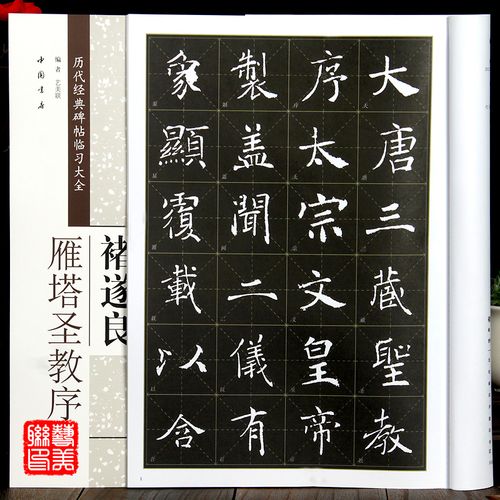 历代经典碑帖临习大全
编者 艺美联
中国书店
褚遂良
雁塔圣教序
大唐三藏聖教
序太宗文皇帝
製盖聞二儀有
象顯覆載以含
藝美聯